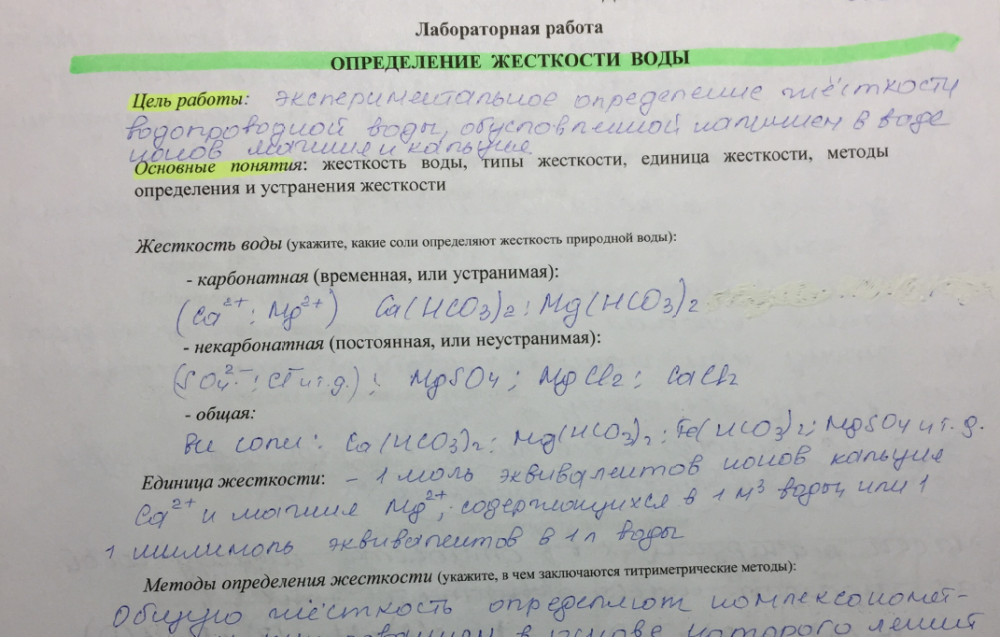 Лабораторная работа
ОПРЕДЕЛЕНИЕ ЖЕСТКОСТИ ВОДЫ
Цель работы: экспериментальное определение жёсткости
водопроводной воды, обусловленной наличием в воде
ионов магния и кальция.
Основные понятия: жесткость воды, типы жесткости, единица жесткости, методы
определения и устранения жесткости
Жесткость воды (укажите, какие соли определяют жесткость природной воды):
- карбонатная (временная, или устранимая):
(Ca²⁺; Mg²⁺) Ca(HCO₃)₂; Mg(HCO₃)₂
- некарбонатная (постоянная, или неустранимая):
(SO₄²⁻; Cl⁻ и т.д.); MgSO₄; MgCl₂; CaCl₂
- общая:
Все соли: Ca(HCO₃)₂; Mg(HCO₃)₂; Fe(HCO₃)₂; MgSO₄ и т.д.
Единица жесткости: - 1 моль эквивалентов ионов кальция
Ca²⁺ и магния Mg²⁺, содержащихся в 1 м³ воды или 1
1 милимоль эквивалентов в 1 л воды
Методы определения жесткости (укажите, в чем заключаются титриметрические методы):
Общую жёсткость определяют комплексономет-
в основе которого лежит